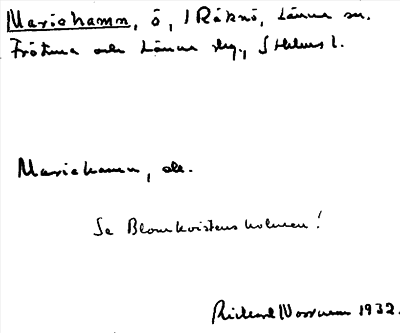 Mariehamn, ö, i Råknö, Länna sn.
Frötuna och Länna skg., Sthlms l.
Mariehamn, ob.
Se Blomkvistensholmen!
Rickard Wottle 1932.